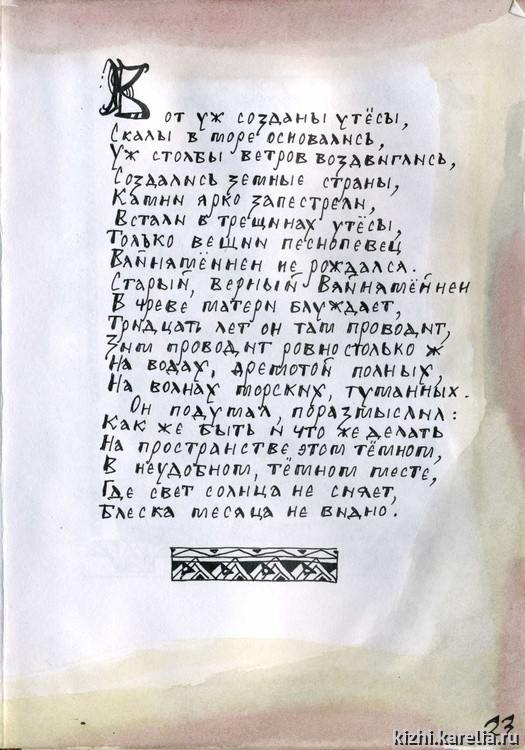 Вот уж созданы утёсы,
Скалы в море основались,
Уж столбы ветров воздвиглись,
Создались земные страны,
Камни ярко запестрели,
Встали в трещинах утёсы,
Только вещий песнопевец
Вяйнямёйнен не рождался.
Старый, верный Вяйнямёйнен
В чреве матери блуждает,
Тридцать лет он там проводит,
Зим проводит ровно столько ж
На водах, дремотой полных,
На волнах морских, туманных.
Он подумал, поразмыслил:
Как же быть и что же делать
На пространстве этом тёмном,
В неудобном, тёмном месте,
Где свет солнца не сияет,
Блеска месяца не видно.
23
kizhi.karelia.ru